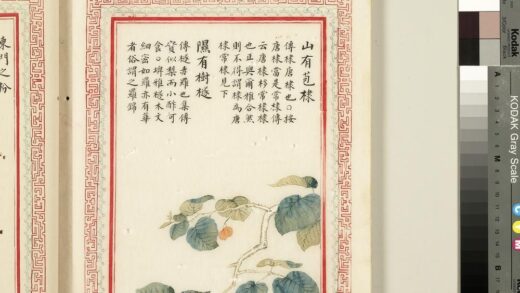 山有苞棣
傳棣唐棣也○按
唐棣當是常棣傳
云唐棣栘常棣棣
也正與爾雅合然
則不得謂棣為唐
棣常棣見下
隰有樹檖
傳檖赤羅也集傳
實似梨而小酢可
食○埤雅檖木文
細密如羅亦有華
者俗謂之羅錦
東門之枌
Kodak
KODAK Gray Scale
A
M
B
C
Y
M